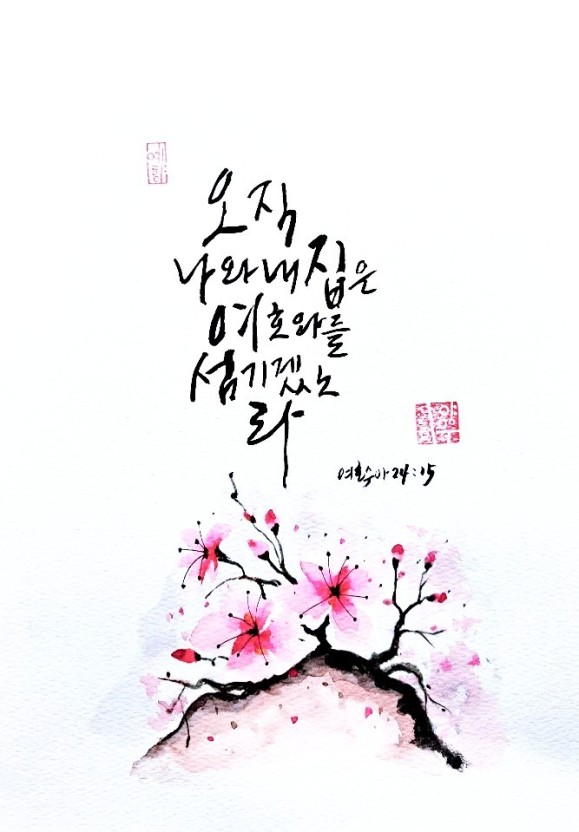 오직
나와 내 집은
여호와를
섬기겠노
라
여호수아 24:15